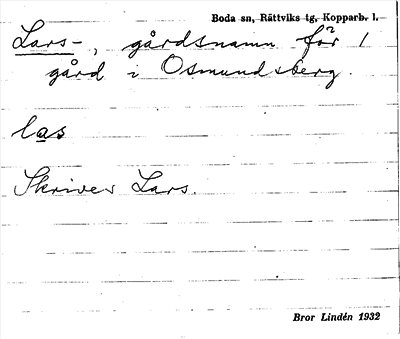 Boda sn, Rättviks tg, Kopparb. l.
Lars-, gårdsnamn för 1
gård i Osmundsberg.
las
Skrives Lars.
Bror Lindén 1932